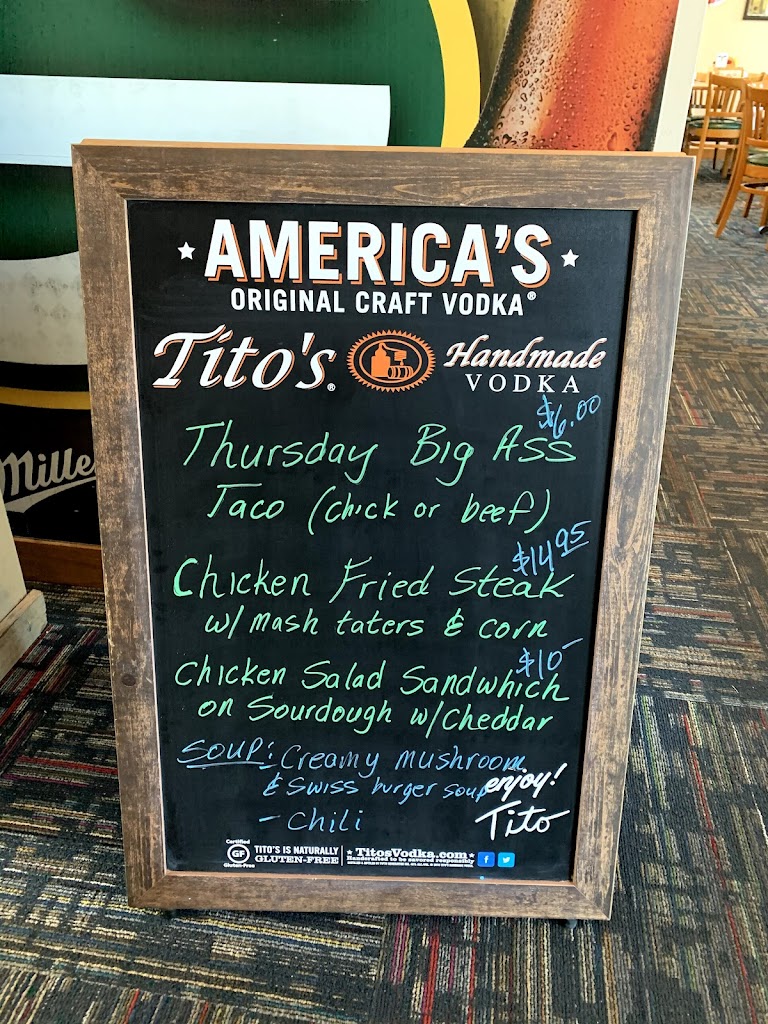 AMERICA'S
ORIGINAL CRAFT VODKA®
Tito's® Handmade
VODKA
$6.00
Thursday Big Ass
Taco (chick or beef)
$14.95
Chicken Fried Steak
w/ mash taters & corn
$10-
Chicken Salad Sandwhich
on Sourdough w/Cheddar
Soup: Creamy mushroom
& Swiss burger soup
- Chili
enjoy!
Tito
Certified
GF
Gluten-Free
TITO'S IS NATURALLY
GLUTEN-FREE
TitosVodka.com
Handcrafted to be savored responsibly
Mille